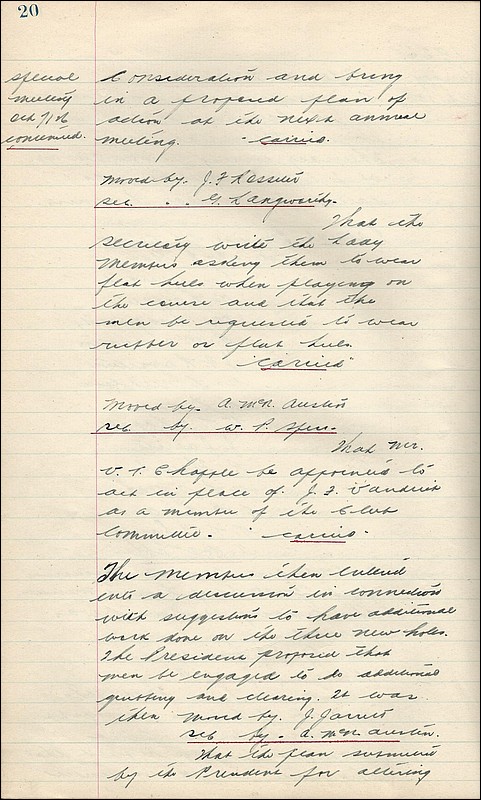 20
special
meeting
Oct 7/26
continued.
Consideration and bring
in a proposed plan of
action at the next annual
meeting. "Carried.
moved by. J. F.
sec. " " G. Langworthy.
That the
secretary write the Lady
members asking them to wear
flat heels when playing on
the course and that the
men be requested to wear
rubber or flat heels.
"Carried"
moved by. A. McN. Austin
sec. by. W. P.
That Mr.
V. T. Chapple be appointed to
act in place of. J. F.
as a member of the Club
Committee. - "carried"
The members then entered
into a discussion in connection
with suggestions to have additional
work done on the three new holes.
The President proposed that
men be engaged to do additional
grubbing and clearing. It was
then moved by. J. Jarvis
sec by. A. McN. Austin.
that the plan submitted
by the President for altering